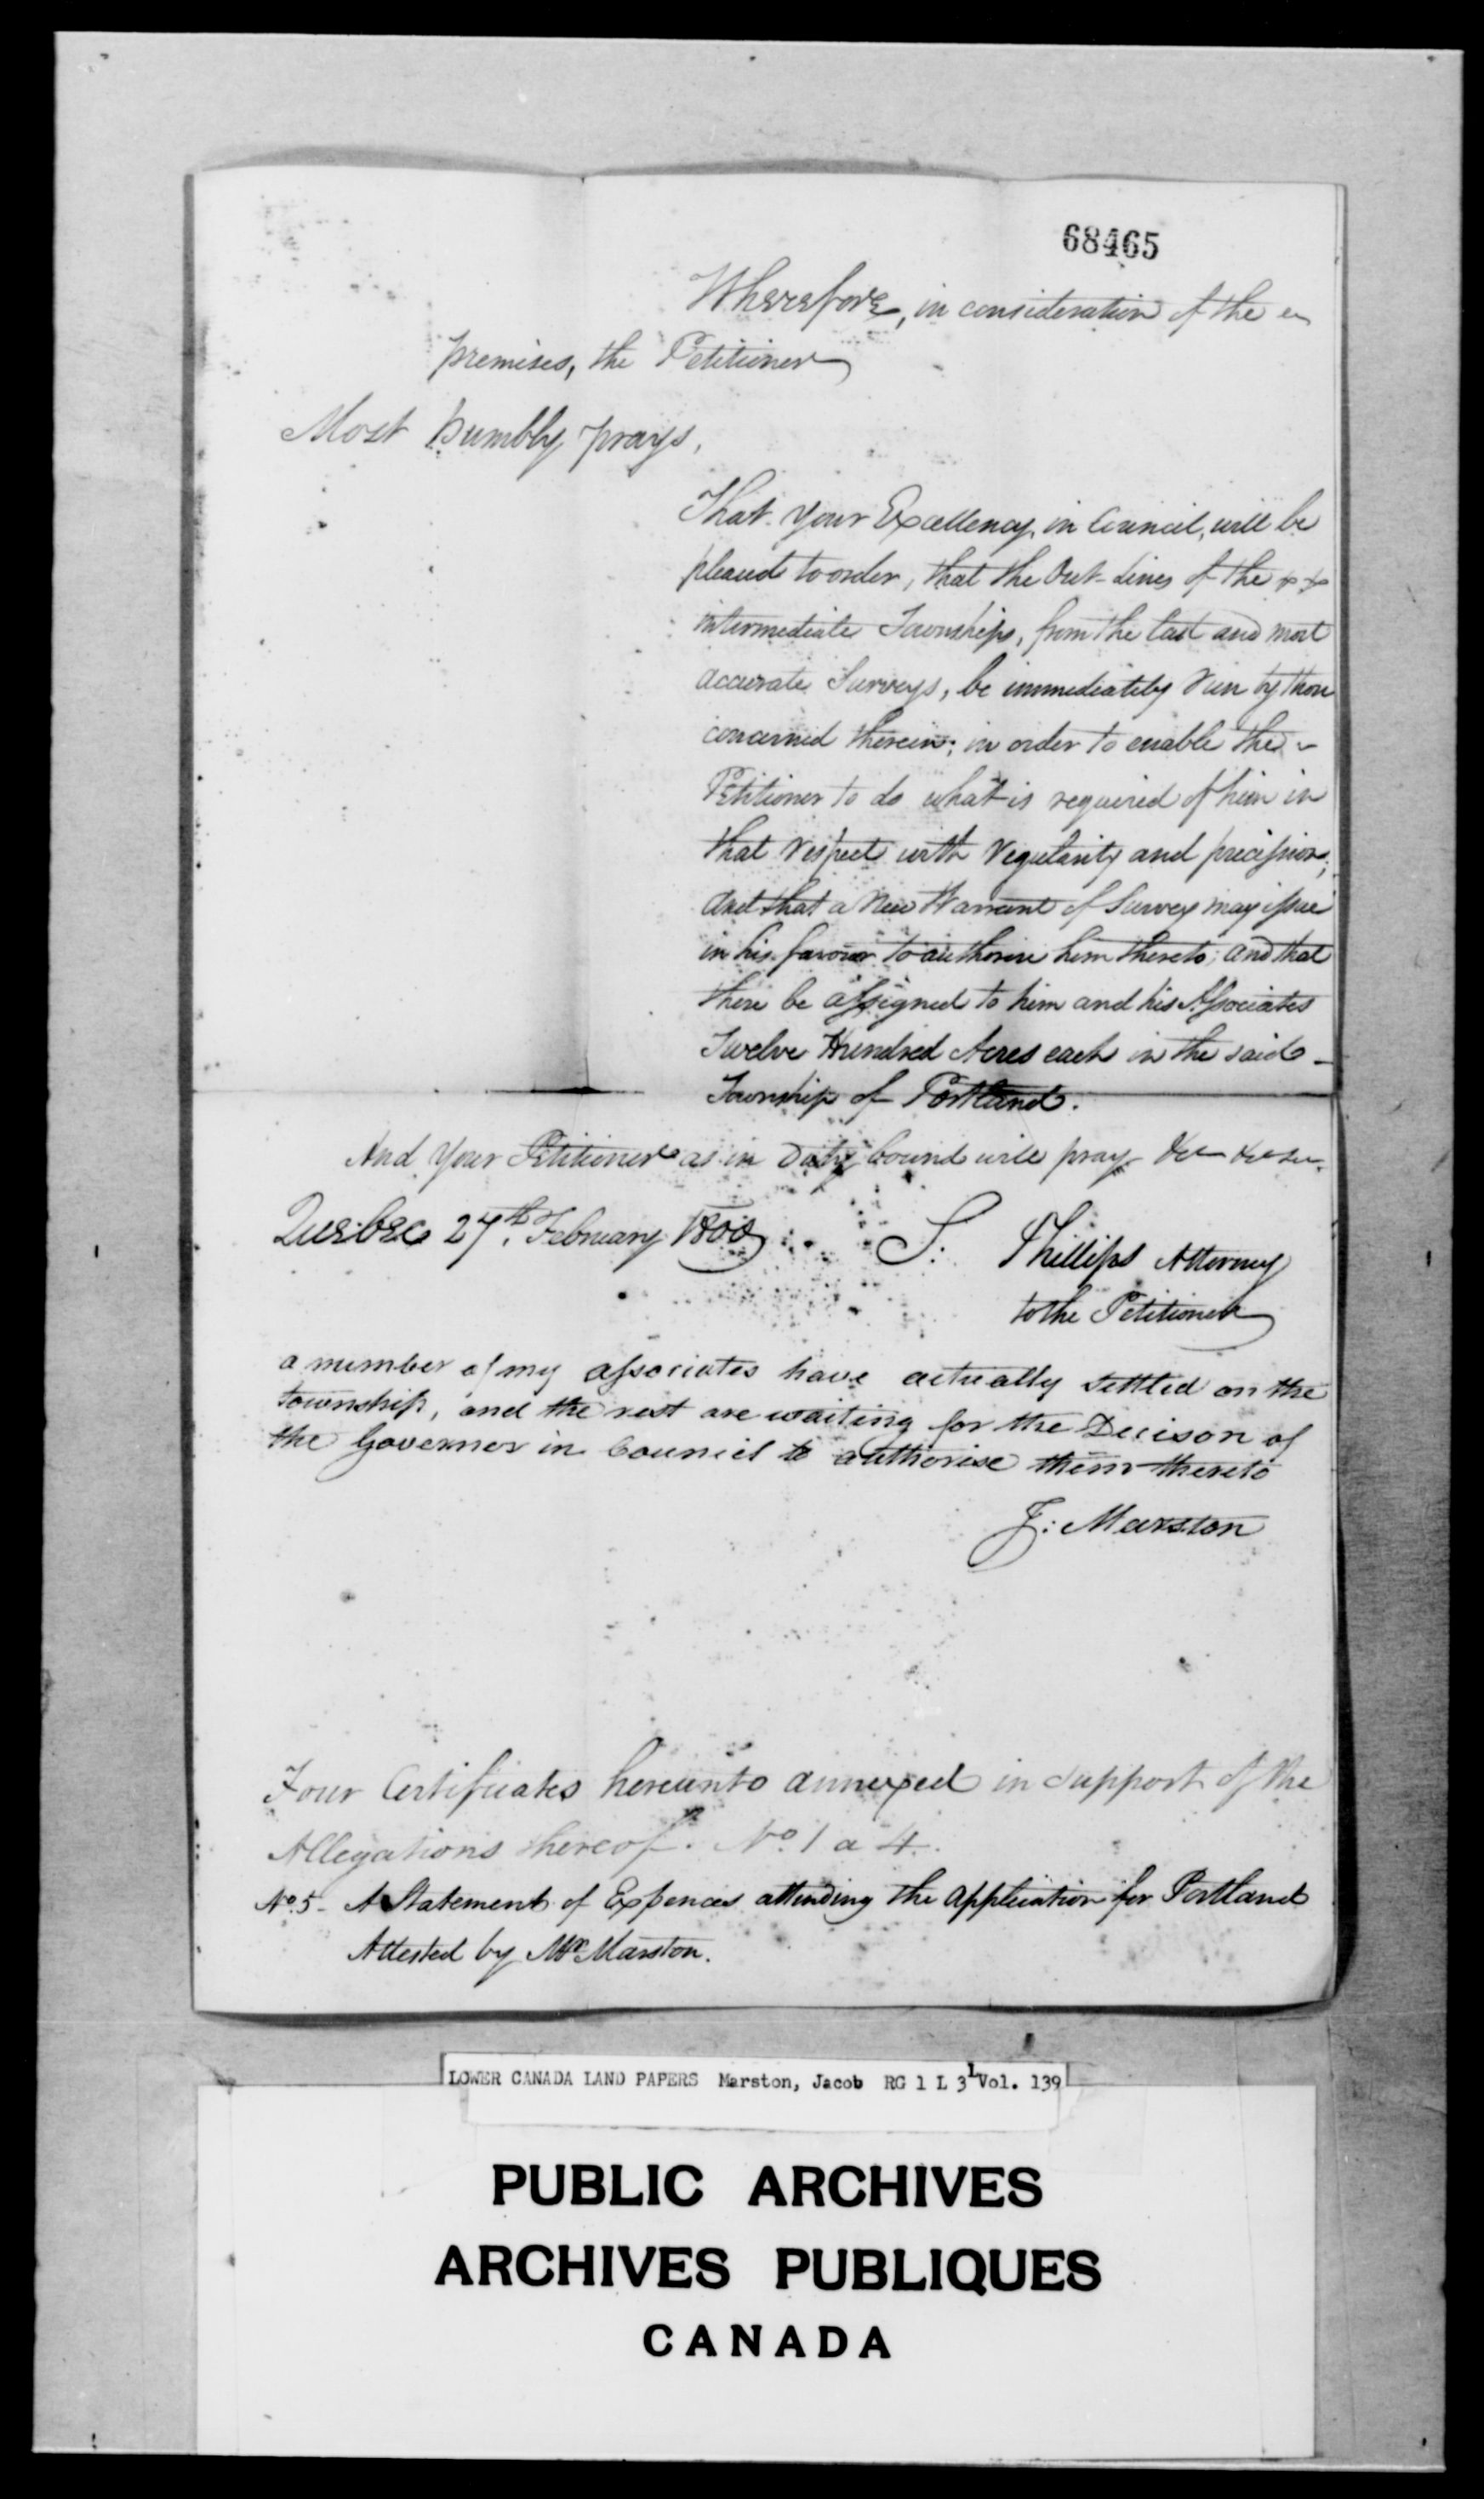 68465
Wherefore, in consideration of the
premises, the Petitioner
Most humbly prays,
That Your Excellency in Council, will be
pleased to order, that the Out-Lines of the
intermediate Townships, from the last and most
accurate Surveys, be immediately run by those
concerned therein; in order to enable the
Petitioner to do what is required of him in
that respect with regularity and precision;
And that a New Warrant of Survey may issue
in his favour to authorise him thereto; and that
there be assigned to him and his Associates
Twelve Hundred Acres each in the said
Township of Portland.
And Your Petitioner as in Duty bound will pray &c &c &c.
Quebec 27th. February 1800
S: Phillips Attorney
to the Petitioner
a number of my associates have actually settled on the
township, and the rest are waiting for the Decison of
the Governor in Council to authorise them thereto
J: Marston
Four Certificates hereunto annexed in support of the
Allegations thereof. No. 1 a 4.
No. 5 - A Statement of Expences attending the Application for Portland
Attested by Mr Marston.
LOWER CANADA LAND PAPERS Marston, Jacob RG 1 L 3L Vol. 139
PUBLIC ARCHIVES
ARCHIVES PUBLIQUES
CANADA